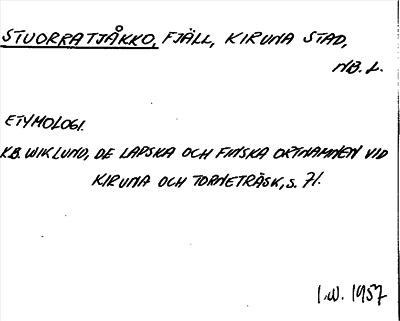 STUORRATJÅKKO, FJÄLL, KIRUNA STAD,
NB. L.
ETYMOLOGI.
K.B. WIKLUND, DE LAPSKA OCH FINSKA ORTNAMNEN VID
KIRUNA OCH TORNETRÄSK, S. 71.
I.W. 1957